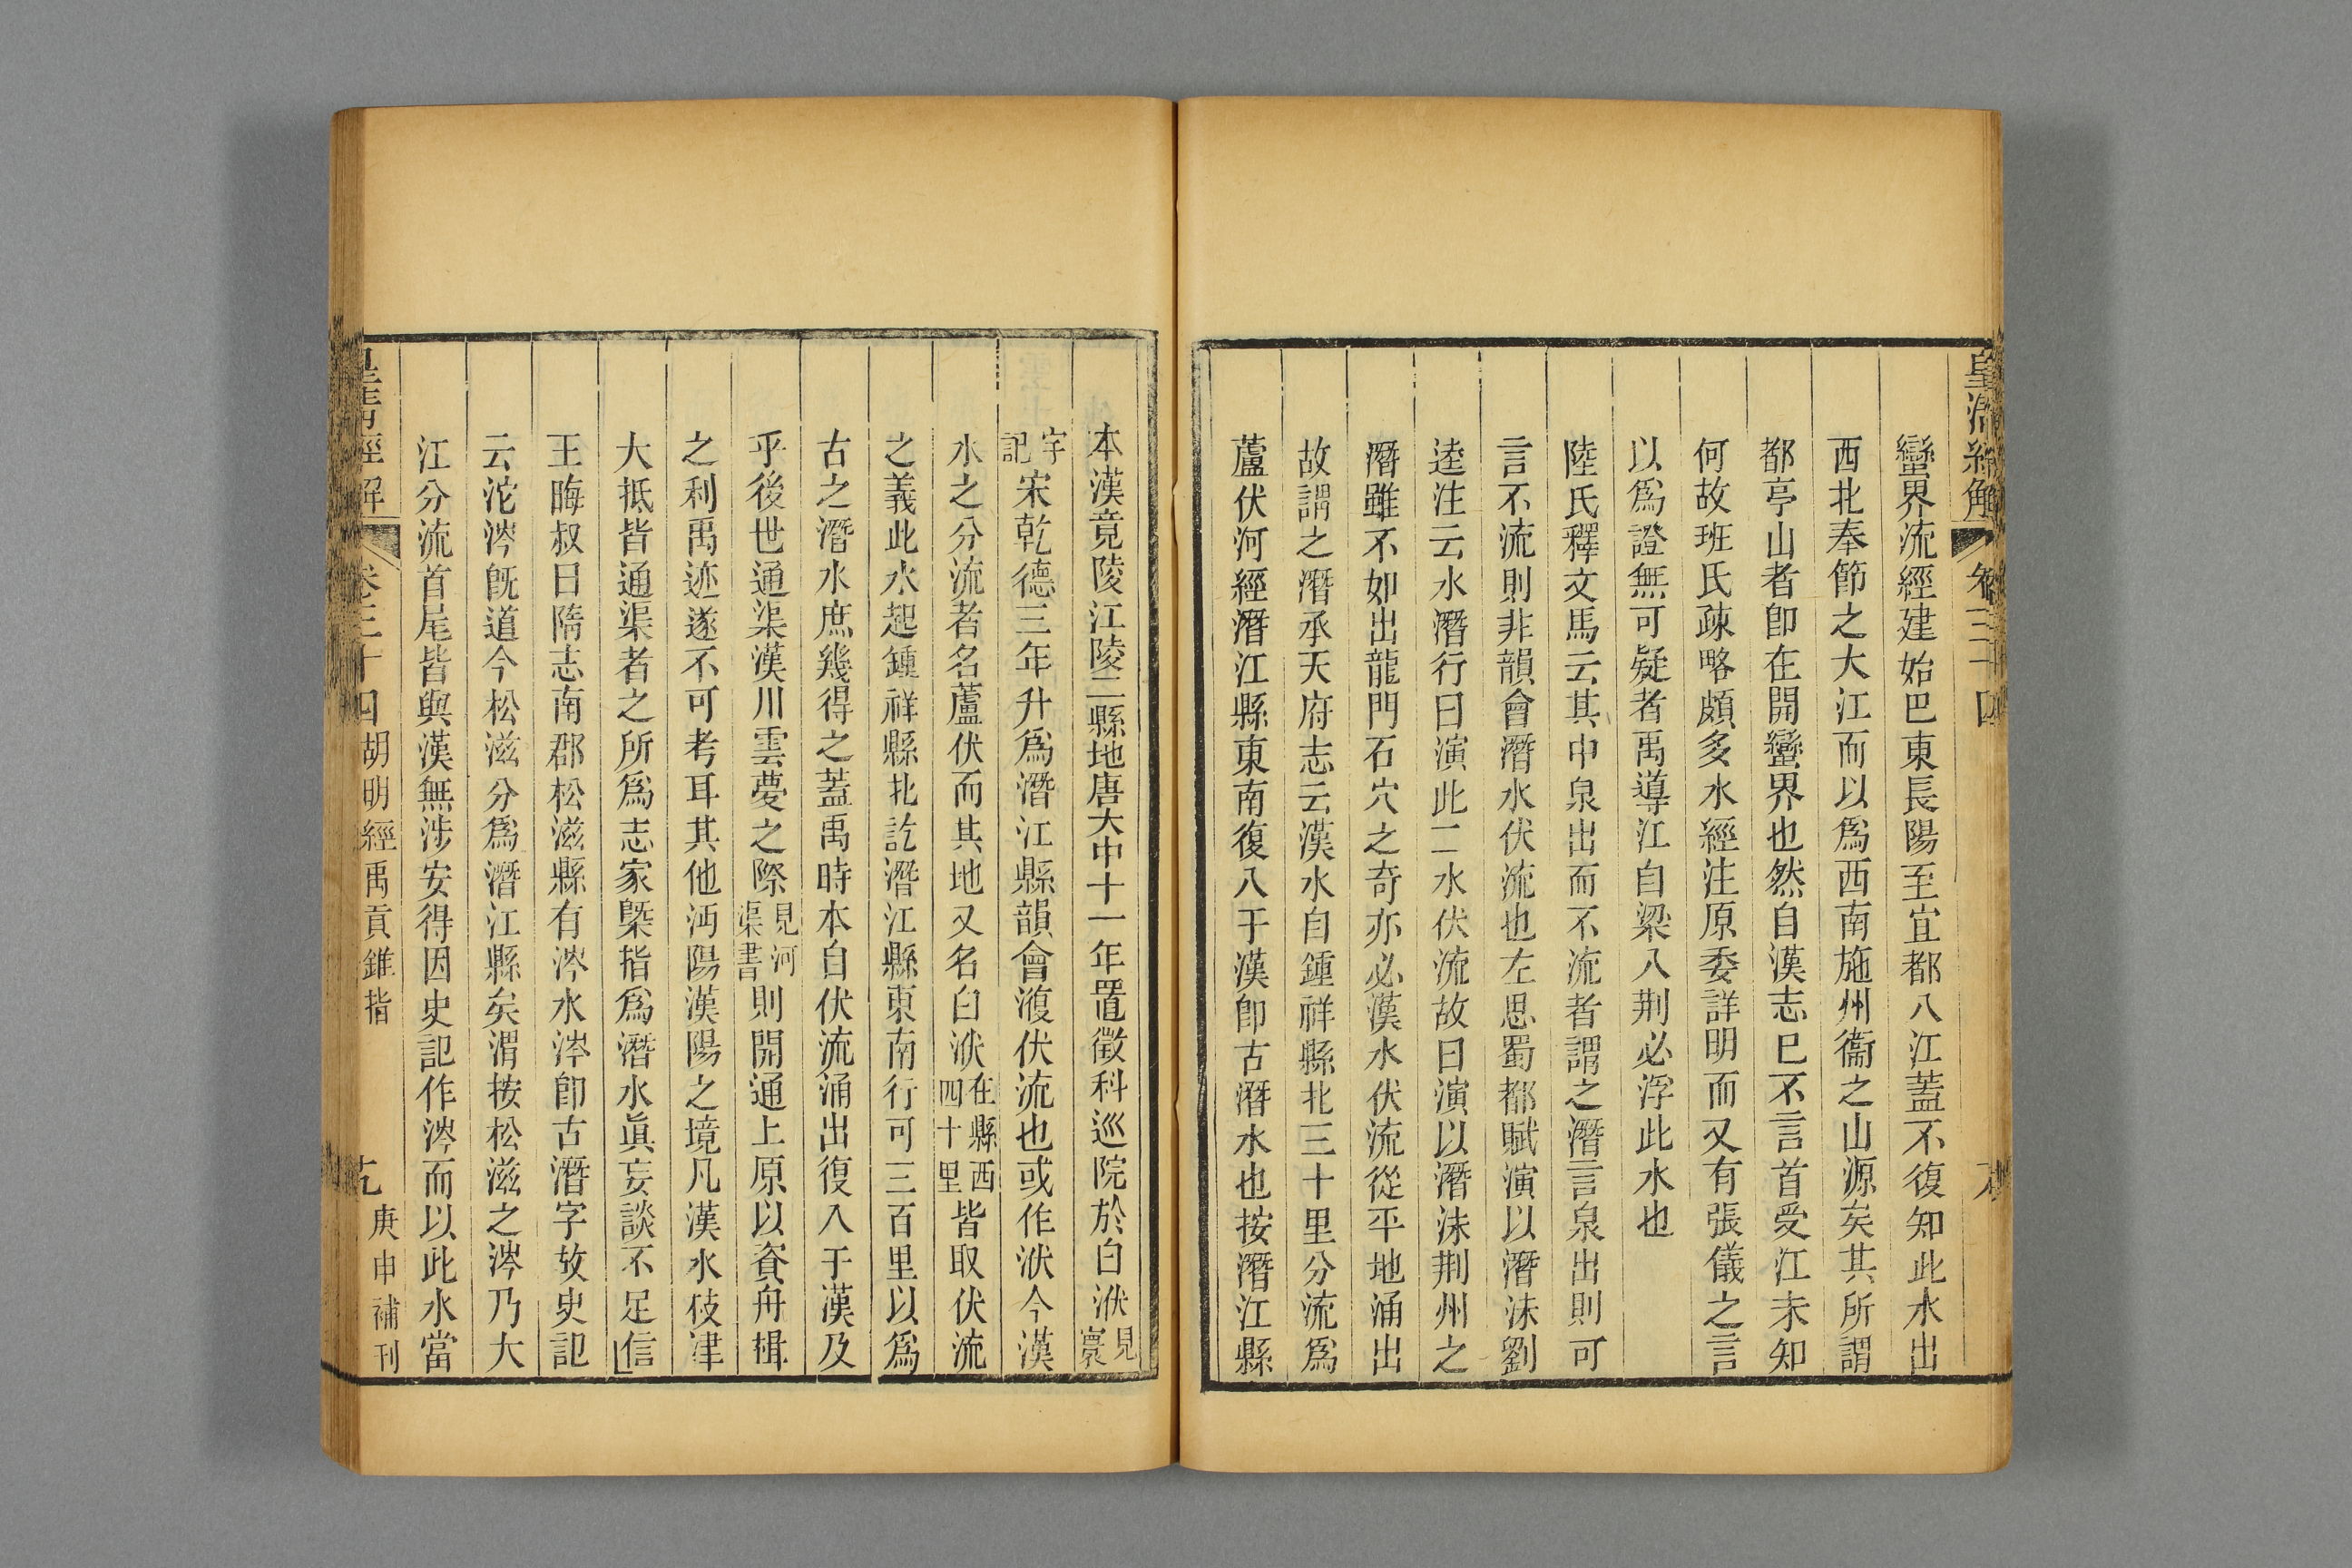 皇清經解
卷三十四
蠻界流經建始巴東長陽至宜都入江蓋不復知此水出
西北奉節之大江而以爲西南施州衞之山源矣其所謂
都亭山者卽在開蠻界也然自漢志已不言首受江未知
何故班氏疎略頗多水經注原委詳明而又有張儀之言
以爲證無可疑者禹導江自梁入荆必浮此水也
陸氏釋文馬云其中泉出而不流者謂之潛言泉出則可
言不流則非韻會潛水伏流也左思蜀都賦演以潛沫劉
逵注云水潛行曰演此二水伏流故曰演以潛沫荆州之
潛雖不如出龍門石穴之奇亦必漢水伏流從平地涌出
故謂之潛承天府志云漢水自鍾祥縣北三十里分流爲
蘆伏河經潛江縣東南復入于漢卽古潛水也按潛江縣
本漢竟陵江陵二縣地唐大中十一年置徵科巡院於白洑見寰
宇記宋乾德三年升爲潛江縣韻會澓伏流也或作洑今漢
水之分流者名蘆伏而其地又名白洑在縣西四十里皆取伏流
之義此水起鍾祥縣北訖潛江縣東南行可三百里以爲
古之潛水庶幾得之蓋禹時本自伏流涌出復入于漢及
乎後世通渠漢川雲夢之際見河渠書則開通上原以資舟楫
之利禹迹遂不可考耳其他沔陽漢陽之境凡漢水枝津
大抵皆通渠者之所爲志家槩指爲潛水眞妄談不足信
王晦叔曰隋志南郡松滋縣有涔水涔卽古潛字故史記
云沱涔旣道今松滋分爲潛江縣矣渭按松滋之涔乃大
江分流首尾皆與漢無涉安得因史記作涔而以此水當
皇清經解
卷三十四
胡明經禹貢錐指
庚申補刊